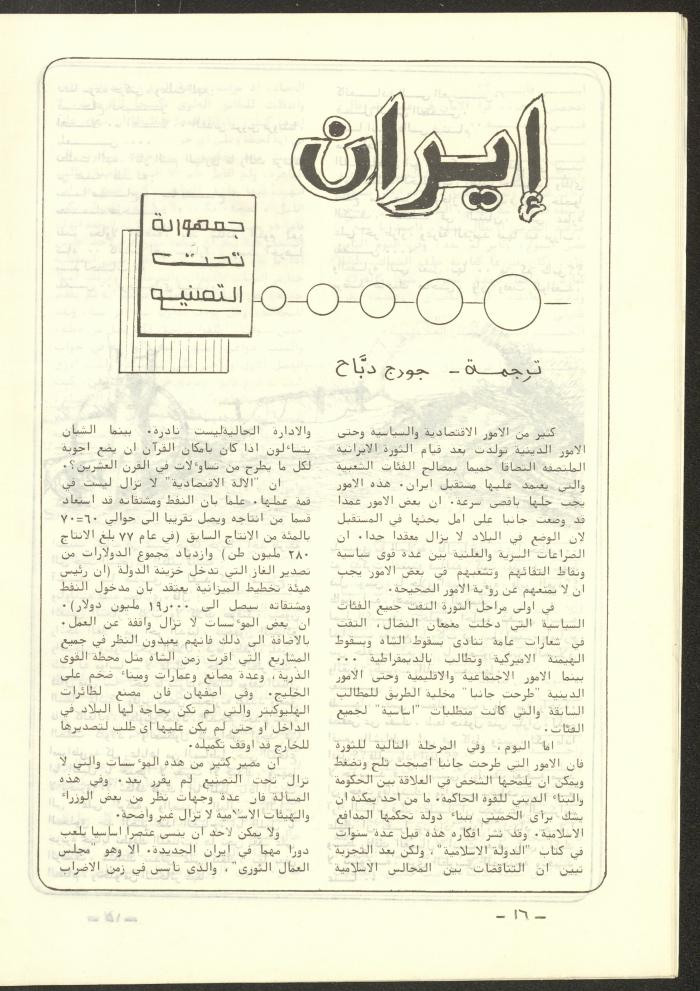 إيران
جمهورية
تحت
التصنيع
ترجمة - جورج دبَّاح
كثير من الامور الاقتصادية والسياسية وحتى
الامور الدينية تولدت بعد قيام الثورة الايرانية
الملتصقة التصاقا حميما بمصالح الفئات الشعبية
والتي يعتمد عليها مستقبل ايران. هذه الامور
يجب حلها باقصى سرعة. ان بعض الامور عمدا
قد وضعت جانبا على امل بحثها في المستقبل
لان الوضع في البلاد لا يزال معقدا جدا. ان
الصراعات السرية والعلنية بين عدة قوى سياسية
ونقاط التقائهم وتشعبهم في بعض الامور يجب
ان لا يمنعهم عن رؤية الامور الصحيحة.
في اولى مراحل الثورة التفت جميع الفئات
السياسية التي دخلت معمعان النضال، التفت
في شعارات عامة تنادي بسقوط الشاه وبسقوط
الهيمنة الاميركية وتطالب بالديمقراطية ...
بينما الامور الاجتماعية والاقليمية وحتى الامور
الدينية "طرحت جانبا" مخلية الطريق للمطالب
السابقة والتي كانت متطلبات "اساسية" لجميع
الفئات.
اما اليوم، وفي المرحلة التالية للثورة
فان الامور التي طرحت جانبا اصبحت تلح وتضغط
ويمكن ان يلمحها الشخص في العلاقة بين الحكومة
والبناء الديني للقوة الحاكمة. ما من احد يمكنه ان
يشك برأي الخميني ببناء دولة تحكمها المدافع
الاسلامية. وقد نشر افكاره هذه قبل عدة سنوات
في كتاب "الدولة الاسلامية"، ولكن بعد التجربة
تبين ان التناقضات بين المجالس الاسلامية
والادارة الحالية ليست نادرة. بينما الشبان
يتساءلون اذا كان بامكان القرآن ان يضع اجوبة
لكل ما يطرح من تساؤلات في القرن العشرين؟.
ان "الالة الاقتصادية" لا تزال ليست في
قمة عملها. علما بان النفط ومشتقاته قد استعاد
قسما من انتاجه ويصل تقريبا الى حوالي ٦٠=٧٠
بالمئة من الانتاج السابق (في عام ٧٧ بلغ الانتاج
٢٨٠ مليون طن) وازدياد مجموع الدولارات من
تصدير الغاز التي تدخل خزينة الدولة (ان رئيس
هيئة تخطيط الميزانية يعتقد بان مدخول النفط
ومشتقاته سيصل الى ١٩٫٠٠٠ مليون دولار).
ان بعض المؤسسات لا تزال واقفة عن العمل.
بالاضافة الى ذلك فانهم يعيدون النظر في جميع
المشاريع التي اقرت زمن الشاه مثل محطة القوى
الذرية، وعدة مصانع وعمارات وميناء ضخم على
الخليج. وفي اصفهان فان مصنع لطائرات
الهليوكبتر والتي لم تكن بحاجة لها البلاد في
الداخل او حتى لم يكن عليها اي طلب لتصديرها
للخارج قد اوقف تكميله.
ان مصير كثير من هذه المؤسسات والتي لا
تزال تحت التصنيع لم يقرر بعد. وفي هذه
المسألة فان عدة وجهات نظر من بعض الوزراء
والهيئات الاسلامية لا تزال غير واضحة.
ولا يمكن لاحد ان ينسى عنصرا اساسيا يلعب
دورا مهما في ايران الجديدة. الا وهو "مجلس
العمال الثوري"، والذي تأسس في زمن الاضراب
- ١٦ -